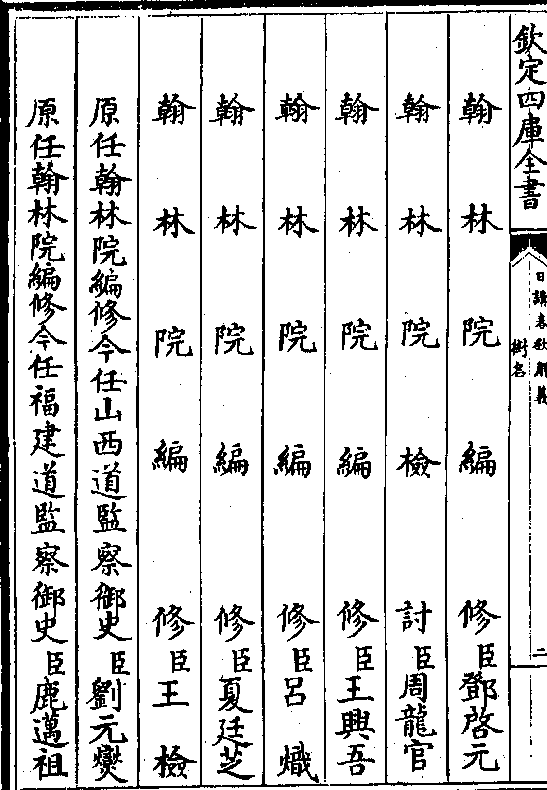 欽定四庫全書
日講春秋解義
銜名
二
翰林院編修臣鄧啓元
翰林院檢討臣周龍官
翰林院編修臣王興吾
翰林院編修臣呂熾
翰林院編修臣夏廷芝
翰林院編修臣王檢
原任翰林院編修今任山西道監察御史臣劉元燮
原任翰林院編修今任福建道監察御史臣鹿邁祖